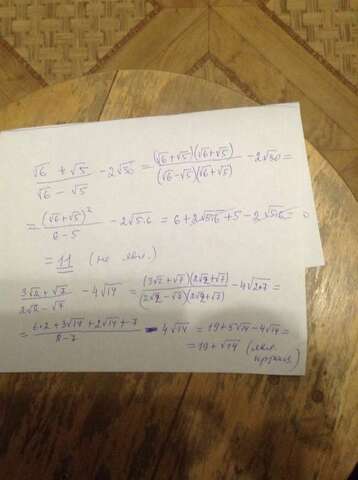 (√6 + √5)/(√6 − √5) − 2√30 = (√6+√5)(√6+√5)/(√6−√5)(√6+√5) − 2√30 =
= (√6+√5)²/(6−5) − 2√5·6 = 6+2√5·6+5−2√5·6 =
= 11 (не явл.)
(3√2 + √7)/(2√2 − √7) − 4√14 = (3√2+√7)(2√2+√7)/(2√2−√7)(2√2+√7) − 4√2·7 =
= (6·2+3√14+2√14+7)/(8−7) − 4√14 = 19+5√14−4√14 =
= 19+√14 (явл.